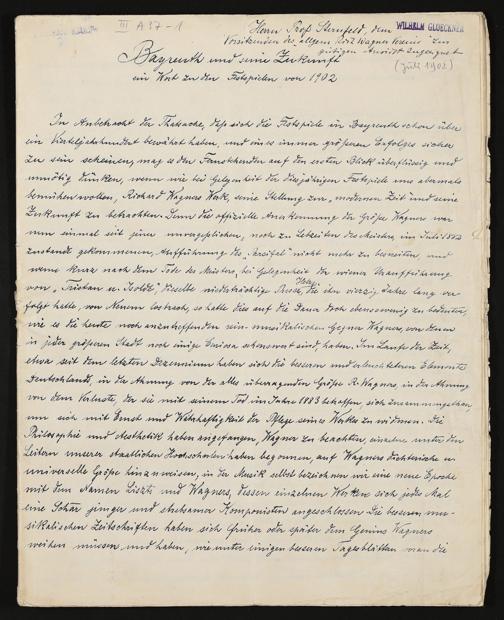 III A 37-1
Herrn Prof. Sternfeld, dem
WILHELM GLOECKNER
Vorsitzenden des allgem. Rich. Wagner Vereins zur
gütigen Ansicht zugeeignet
(Juli 1902)
Bayreuth und seine Zukunft
ein Wort zu den Festspielen von 1902
In Anbetracht der Thatsache, daß sich die Festspiele in Bayreuth schon über
ein Vierteljahrhundert bewährt haben, und eines immer größeren Erfolges sicher
zu sein scheinen, mag es dem Fernstehenden auf den ersten Blick überflüssig und
unnötig dünken, wenn wir bei Gelegenheit der diesjährigen Festspiele uns abermals
bemühen wollen, Richard Wagners Werk, seine Stellung zur "modernen Zeit" und seine
Zukunft zu betrachten. Denn die offizielle Anerkennung der Größe Wagners war
nun einmal seit jener unvergeßlichen, noch zu Lebzeiten des Meisters, im Juli 1882
zustande gekommenen, Aufführung des "Parsifal" nicht mehr zu bestreiten und
wenn kurz nach dem Tode des Meisters, bei Gelegenheit der wiener Uraufführung
von "Tristan u. Isolde" dieselbe niederträchtige Hetze, die ihn vierzig Jahre lang ver-
folgt hatte, von Neuem losbrach, so hatte dies auf die Dauer doch ebensowenig zu bedeuten,
wie es die heute noch anzutreffenden rein-musikalischen Gegner Wagners, von denen
in jeder größeren Stadt noch einige sind, haben. Im Laufe der Zeit,
etwa seit dem letzten Dezennium haben sich die besseren und erleuchteteren Elemente
Deutschlands, in der Ahnung von der alles überragenden Größe R. Wagners, in der Ahnung
von dem Verluste, der sie mit seinem Tod im Jahre 1883 betroffen, sich zusammengethan,
um sich mit Ernst und Wahrhaftigkeit der Pflege seines Werkes zu widmen. Die
Philosophie und Aesthetik haben angefangen, Wagner zu beachten, einzelne unter den
Leitern unserer staatlichen Hochschulen haben begonnen, auf Wagners dichterische u.
universelle Größe hinzuweisen, in der Musik selbst bezeichnen wir eine neue Epoche
mit dem Namen Liszts und Wagners, dessen einzelnen Werken sich jedes Mal
eine Schar junger und ehrsamer Komponisten angeschlossen. Die besseren mu-
sikalischen Zeitschriften haben sich früher oder später dem Genius Wagners
weihen müssen und haben, wie unter einigen besseren Tagesblättern voran die